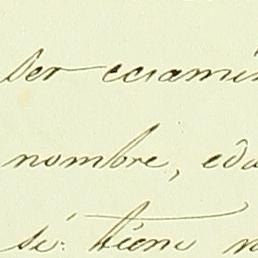 ser ecsamin
nombre, eda
si: tiene n